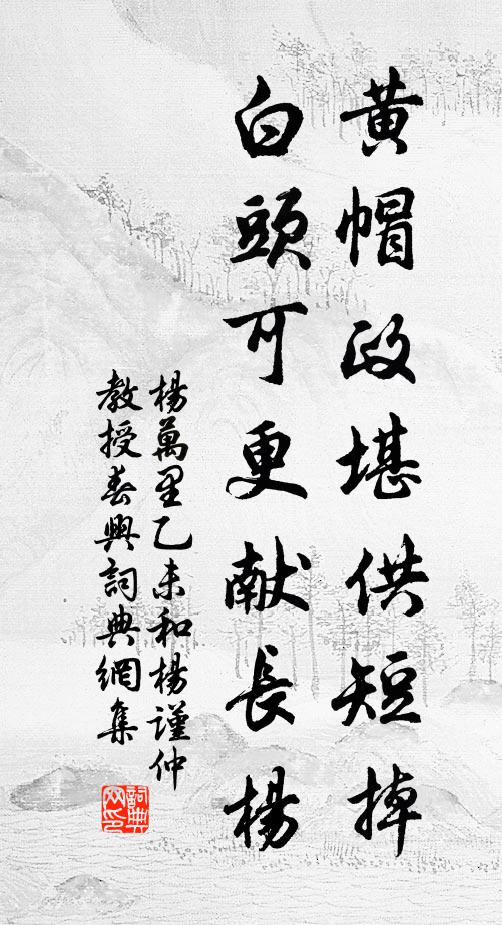 黄帽政堪供短掉
白頭可更献長楊
楊萬里乙未和楊謹仲
教授春興詞典網集
詞典网印